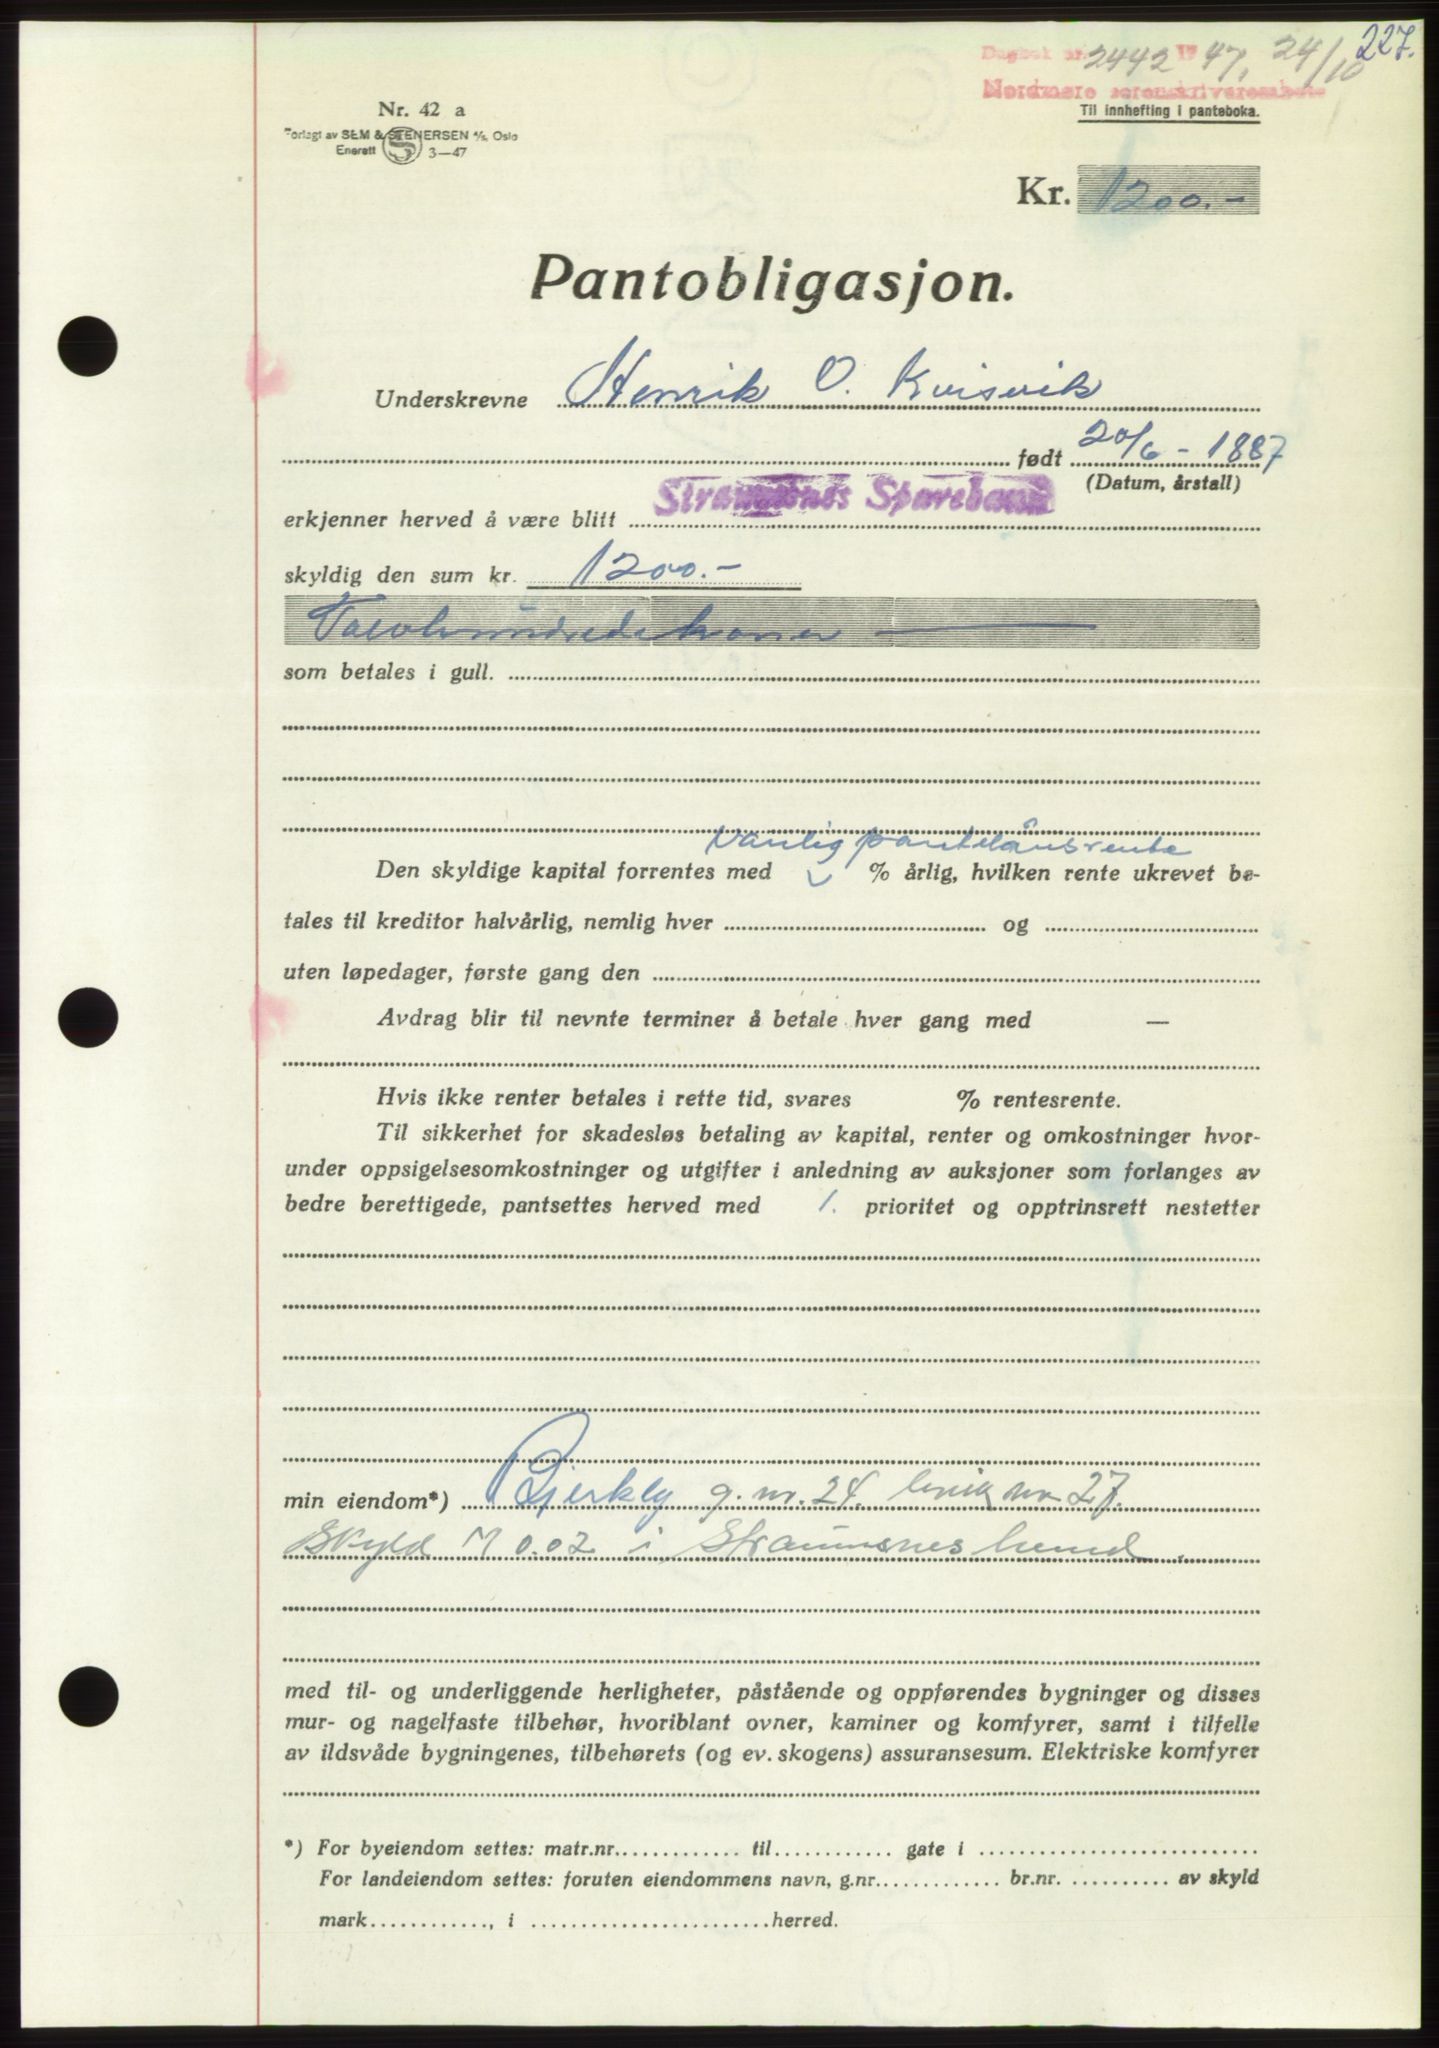 227.
Dagbok nr. 2442 19 47, 24/10
Nordmøre sorenskriverembete
Til innhefting i panteboka.
Nr. 42 a
Forlagt av SEM & STENERSEN A/S, Oslo
Enerett S 3—47
Kr. 1200.-
Pantobligasjon.
Underskrevne Henrik O. Kvisvik
født 20/6 - 1887
(Datum, årstall)
erkjenner herved å være blitt Straumsnes Sparebank
skyldig den sum kr. 1200.-
Tolvhundredekroner
som betales i gull.
Vanlig pantelånsrente
Den skyldige kapital forrentes med % årlig, hvilken rente ukrevet be-
tales til kreditor halvårlig, nemlig hver og
uten løpedager, første gang den
Avdrag blir til nevnte terminer å betale hver gang med —
Hvis ikke renter betales i rette tid, svares % rentesrente.
Til sikkerhet for skadesløs betaling av kapital, renter og omkostninger hvor-
under oppsigelsesomkostninger og utgifter i anledning av auksjoner som forlanges av
bedre berettigede, pantsettes herved med 1. prioritet og opptrinsrett nestetter
min eiendom*) Bjerkly g. nr. 24. nr 27.
Skyld M 0.02 i Straumsnes herred.
med til- og underliggende herligheter, påstående og oppførendes bygninger og disses
mur- og nagelfaste tilbehør, hvoriblant ovner, kaminer og komfyrer, samt i tilfelle
av ildsvåde bygningenes, tilbehørets (og ev. skogens) assuransesum. Elektriske komfyrer
*) For byeiendom settes: matr.nr. til gate i
For landeiendom settes: foruten eiendommens navn, g.nr. br.nr. av skyld
mark , i herred.